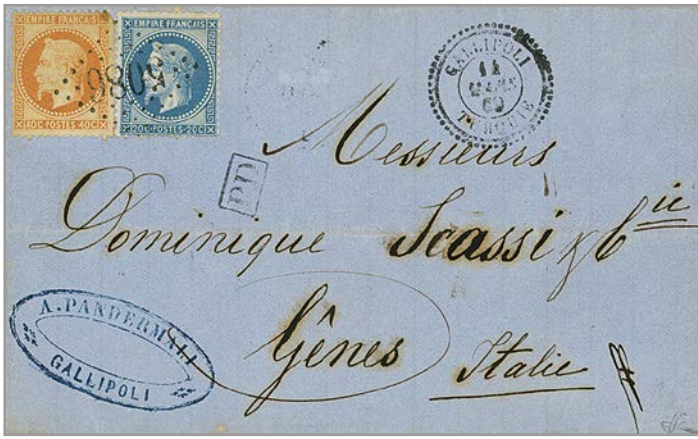 EMPIRE FRANÇAIS
40C·POSTES·40C
EMPIRE FRANÇAIS
20C·POSTES·20C
5086
GALLIPOLI
TURQUIE
PD
Messieurs
Dominique Scassi & Cie
Gênes Italie
A. PANDERMALI
GALLIPOLI